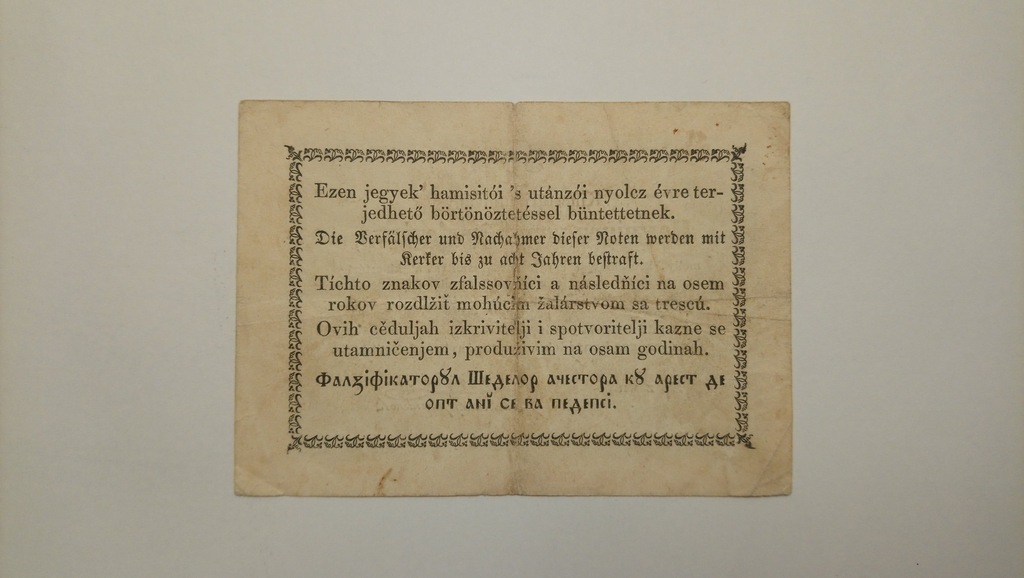 Ezen jegyek’ hamisitói ’s utánzói nyolcz évre ter-
jedhető börtönöztetéssel büntettetnek.
Die Verfälscher und Nachahmer dieser Noten werden mit
Kerker bis zu acht Jahren bestraft.
Tíchto znakov zfalssovňíci a následňíci na osem
rokov rozdlžiť mohúcím žalárstvom sa trescú.
Ovih cěduljah izkrivitelji i spotvoritelji kazne se
utamničenjem, produživim na osam godinah.
Фалꙁіфікаторꙋл Шеделор ачестора кꙋ арест де
опт анї се ва педепсі.